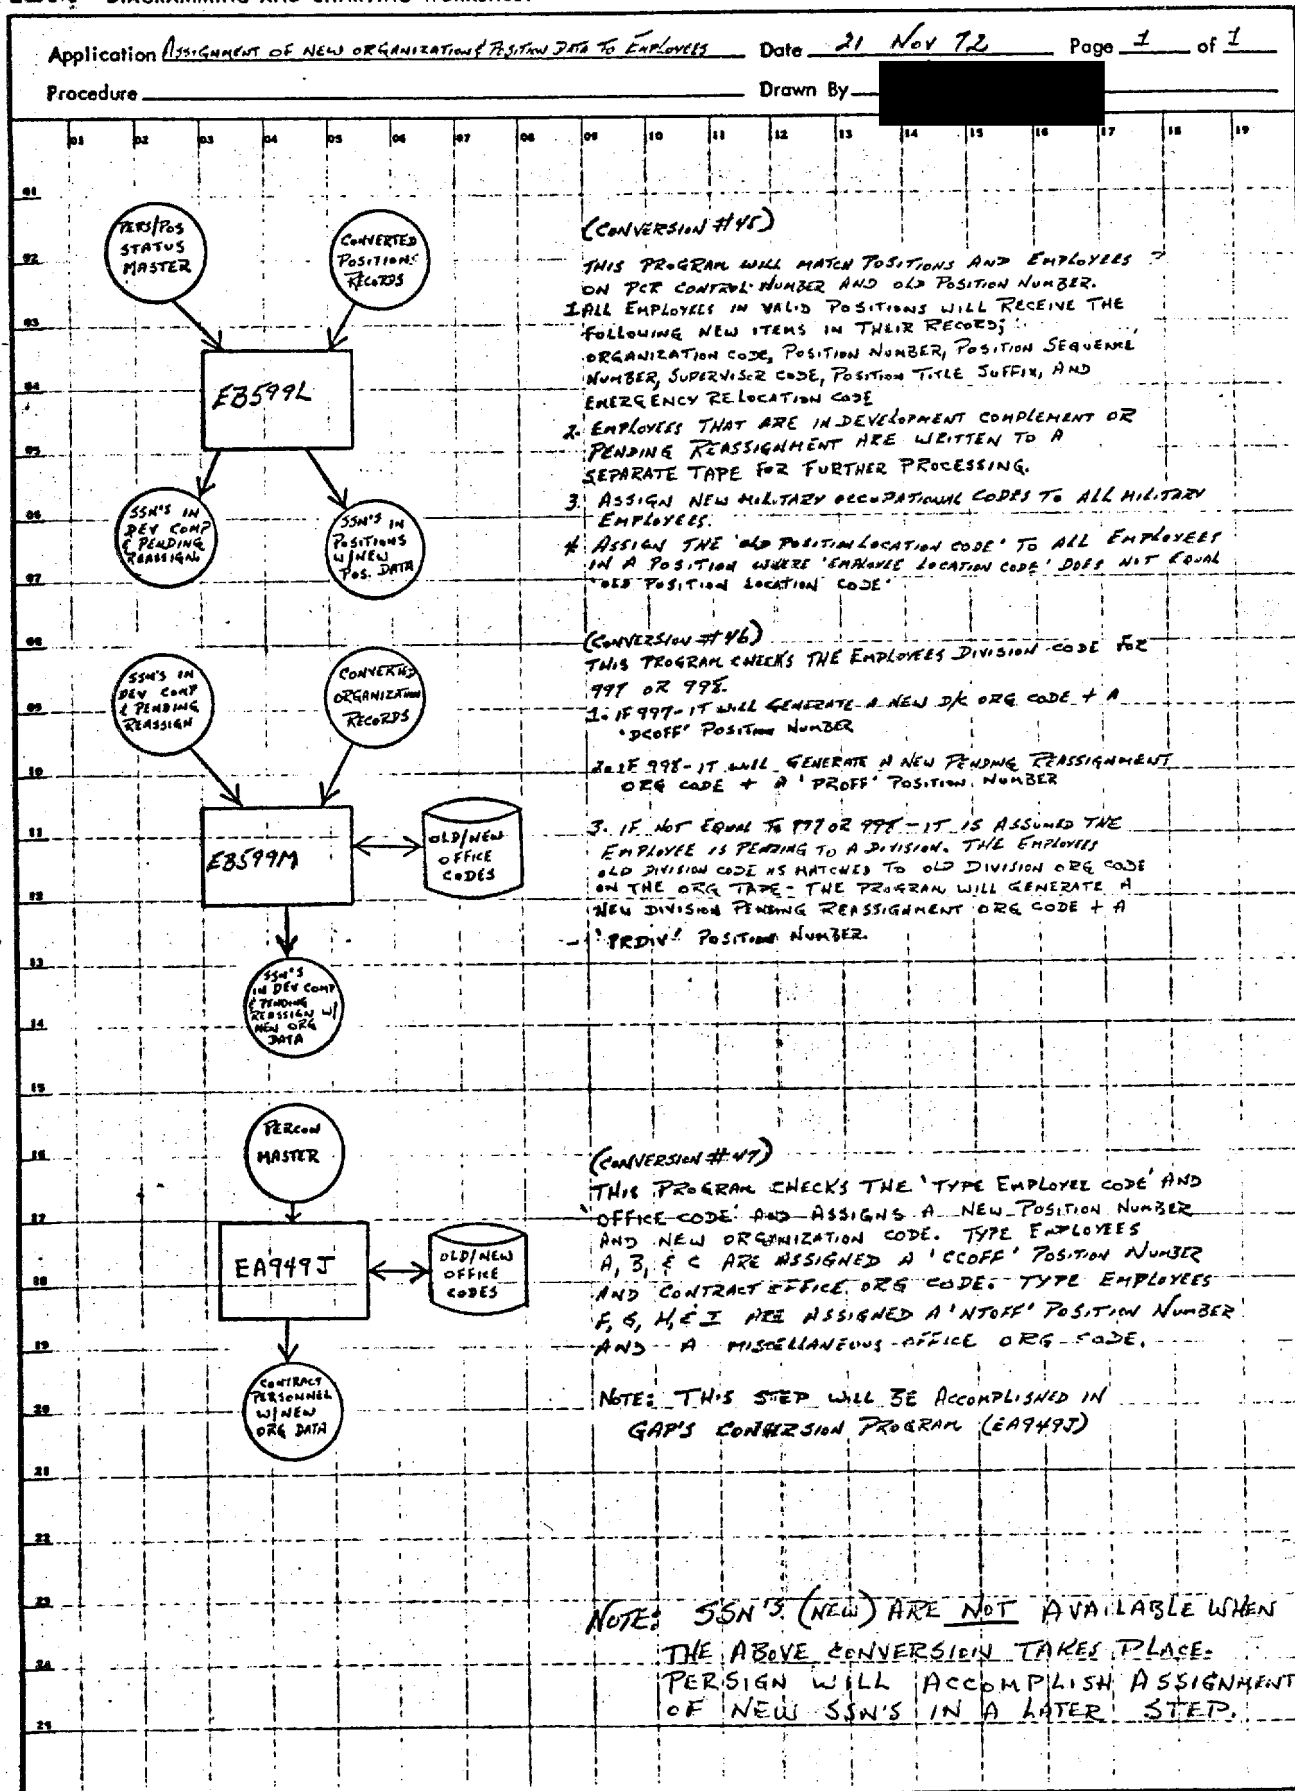 DIAGRAMMING AND CHARTING WORKSHEET
Application ASSIGNMENT OF NEW ORGANIZATION & POSITION DATA TO EMPLOYEES Date 21 NOV 72 Page 1 of 1
Procedure Drawn By
01 02 03 04 05 06 07 08 09 10 11 12 13 14 15 16 17 18 19
01
02
03
04
05
06
07
08
09
10
11
12
13
14
15
16
17
18
19
20
21
22
23
24
25
PERS/POS
STATUS
MASTER
CONVERTED
POSITIONS
RECORDS
EB599L
SSN'S IN
DEV COMP
& PENDING
REASSIGN.
SSN'S IN
POSITIONS
W/NEW
POS. DATA
(CONVERSION #45)
THIS PROGRAM WILL MATCH POSITIONS AND EMPLOYEES
ON PCR CONTROL NUMBER AND OLD POSITION NUMBER.
1. ALL EMPLOYEES IN VALID POSITIONS WILL RECEIVE THE
FOLLOWING NEW ITEMS IN THEIR RECORD;
ORGANIZATION CODE, POSITION NUMBER, POSITION SEQUENCE
NUMBER, SUPERVISOR CODE, POSITION TITLE SUFFIX, AND
EMERGENCY RELOCATION CODE
2. EMPLOYEES THAT ARE IN DEVELOPMENT COMPLEMENT OR
PENDING REASSIGNMENT ARE WRITTEN TO A
SEPARATE TAPE FOR FURTHER PROCESSING.
3. ASSIGN NEW MILITARY OCCUPATIONAL CODES TO ALL MILITARY
EMPLOYEES.
4. ASSIGN THE 'OLD POSITION LOCATION CODE' TO ALL EMPLOYEES
IN A POSITION WHERE 'EMPLOYEE LOCATION CODE' DOES NOT EQUAL
'OLD POSITION LOCATION CODE'
SSN'S IN
DEV COMP
& PENDING
REASSIGN
CONVERTED
ORGANIZATION
RECORDS
EB599M
OLD/NEW
OFFICE
CODES
SSN'S
IN DEV COMP
& PENDING
REASSIGN W/
NEW ORG
DATA
(CONVERSION #46)
THIS PROGRAM CHECKS THE EMPLOYEES DIVISION CODE FOR
997 OR 998.
1. IF 997 - IT WILL GENERATE A NEW D/C ORG CODE + A
'DCOFF' POSITION NUMBER
2. IF 998 - IT WILL GENERATE A NEW PENDING REASSIGNMENT
ORG CODE + A 'PROFF' POSITION NUMBER
3. IF NOT EQUAL TO 997 OR 998 - IT IS ASSUMED THE
EMPLOYEE IS PENDING TO A DIVISION. THE EMPLOYEES
OLD DIVISION CODE IS MATCHED TO OLD DIVISION ORG CODE
ON THE ORG TAPE - THE PROGRAM WILL GENERATE A
NEW DIVISION PENDING REASSIGNMENT ORG CODE + A
'PRDIV' POSITION NUMBER.
PERCON
MASTER
EA949J
OLD/NEW
OFFICE
CODES
CONTRACT
PERSONNEL
W/NEW
ORG DATA
(CONVERSION #47)
THIS PROGRAM CHECKS THE 'TYPE EMPLOYEE CODE' AND
'OFFICE CODE' AND ASSIGNS A NEW POSITION NUMBER
AND NEW ORGANIZATION CODE. TYPE EMPLOYEES
A, B, & C ARE ASSIGNED A 'CCOFF' POSITION NUMBER
AND CONTRACT OFFICE ORG CODE. TYPE EMPLOYEES
F, G, H, & I ARE ASSIGNED A 'NTOFF' POSITION NUMBER
AND A MISCELLANEOUS OFFICE ORG CODE.
NOTE: THIS STEP WILL BE ACCOMPLISHED IN
GAP'S CONVERSION PROGRAM (EA949J)
NOTE: SSN'S (NEW) ARE NOT AVAILABLE WHEN
THE ABOVE CONVERSION TAKES PLACE.
PERSIGN WILL ACCOMPLISH ASSIGNMENT
OF NEW SSN'S IN A LATER STEP.